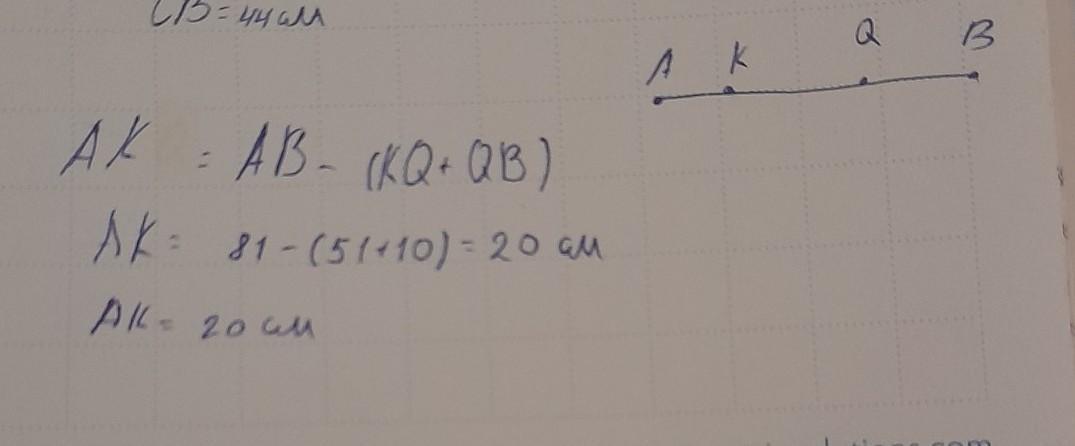 CB = 44 см
A K Q B
AK = AB - (KQ + QB)
AK = 81 - (51 + 10) = 20 см
AK = 20 см